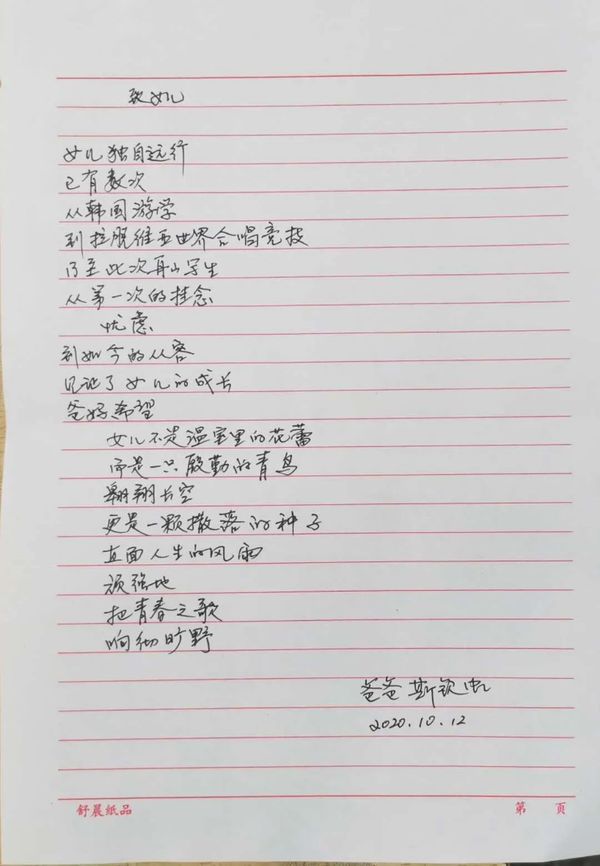 致女儿
女儿独自远行
已有数次
从韩国游学
到拉脱维亚世界合唱竞技
乃至此次舟山写生
从第一次的挂念
忧虑
到如今的从容
见证了女儿的成长
爸妈希望
女儿不是温室里的花蕾
而是一只殷勤的青鸟
翱翔长空
更是一颗撒落的种子
直面人生的风雨
顽强地
把青春之歌
响彻旷野
爸爸 斯钦
2020.10.12
舒晨纸品
第 页